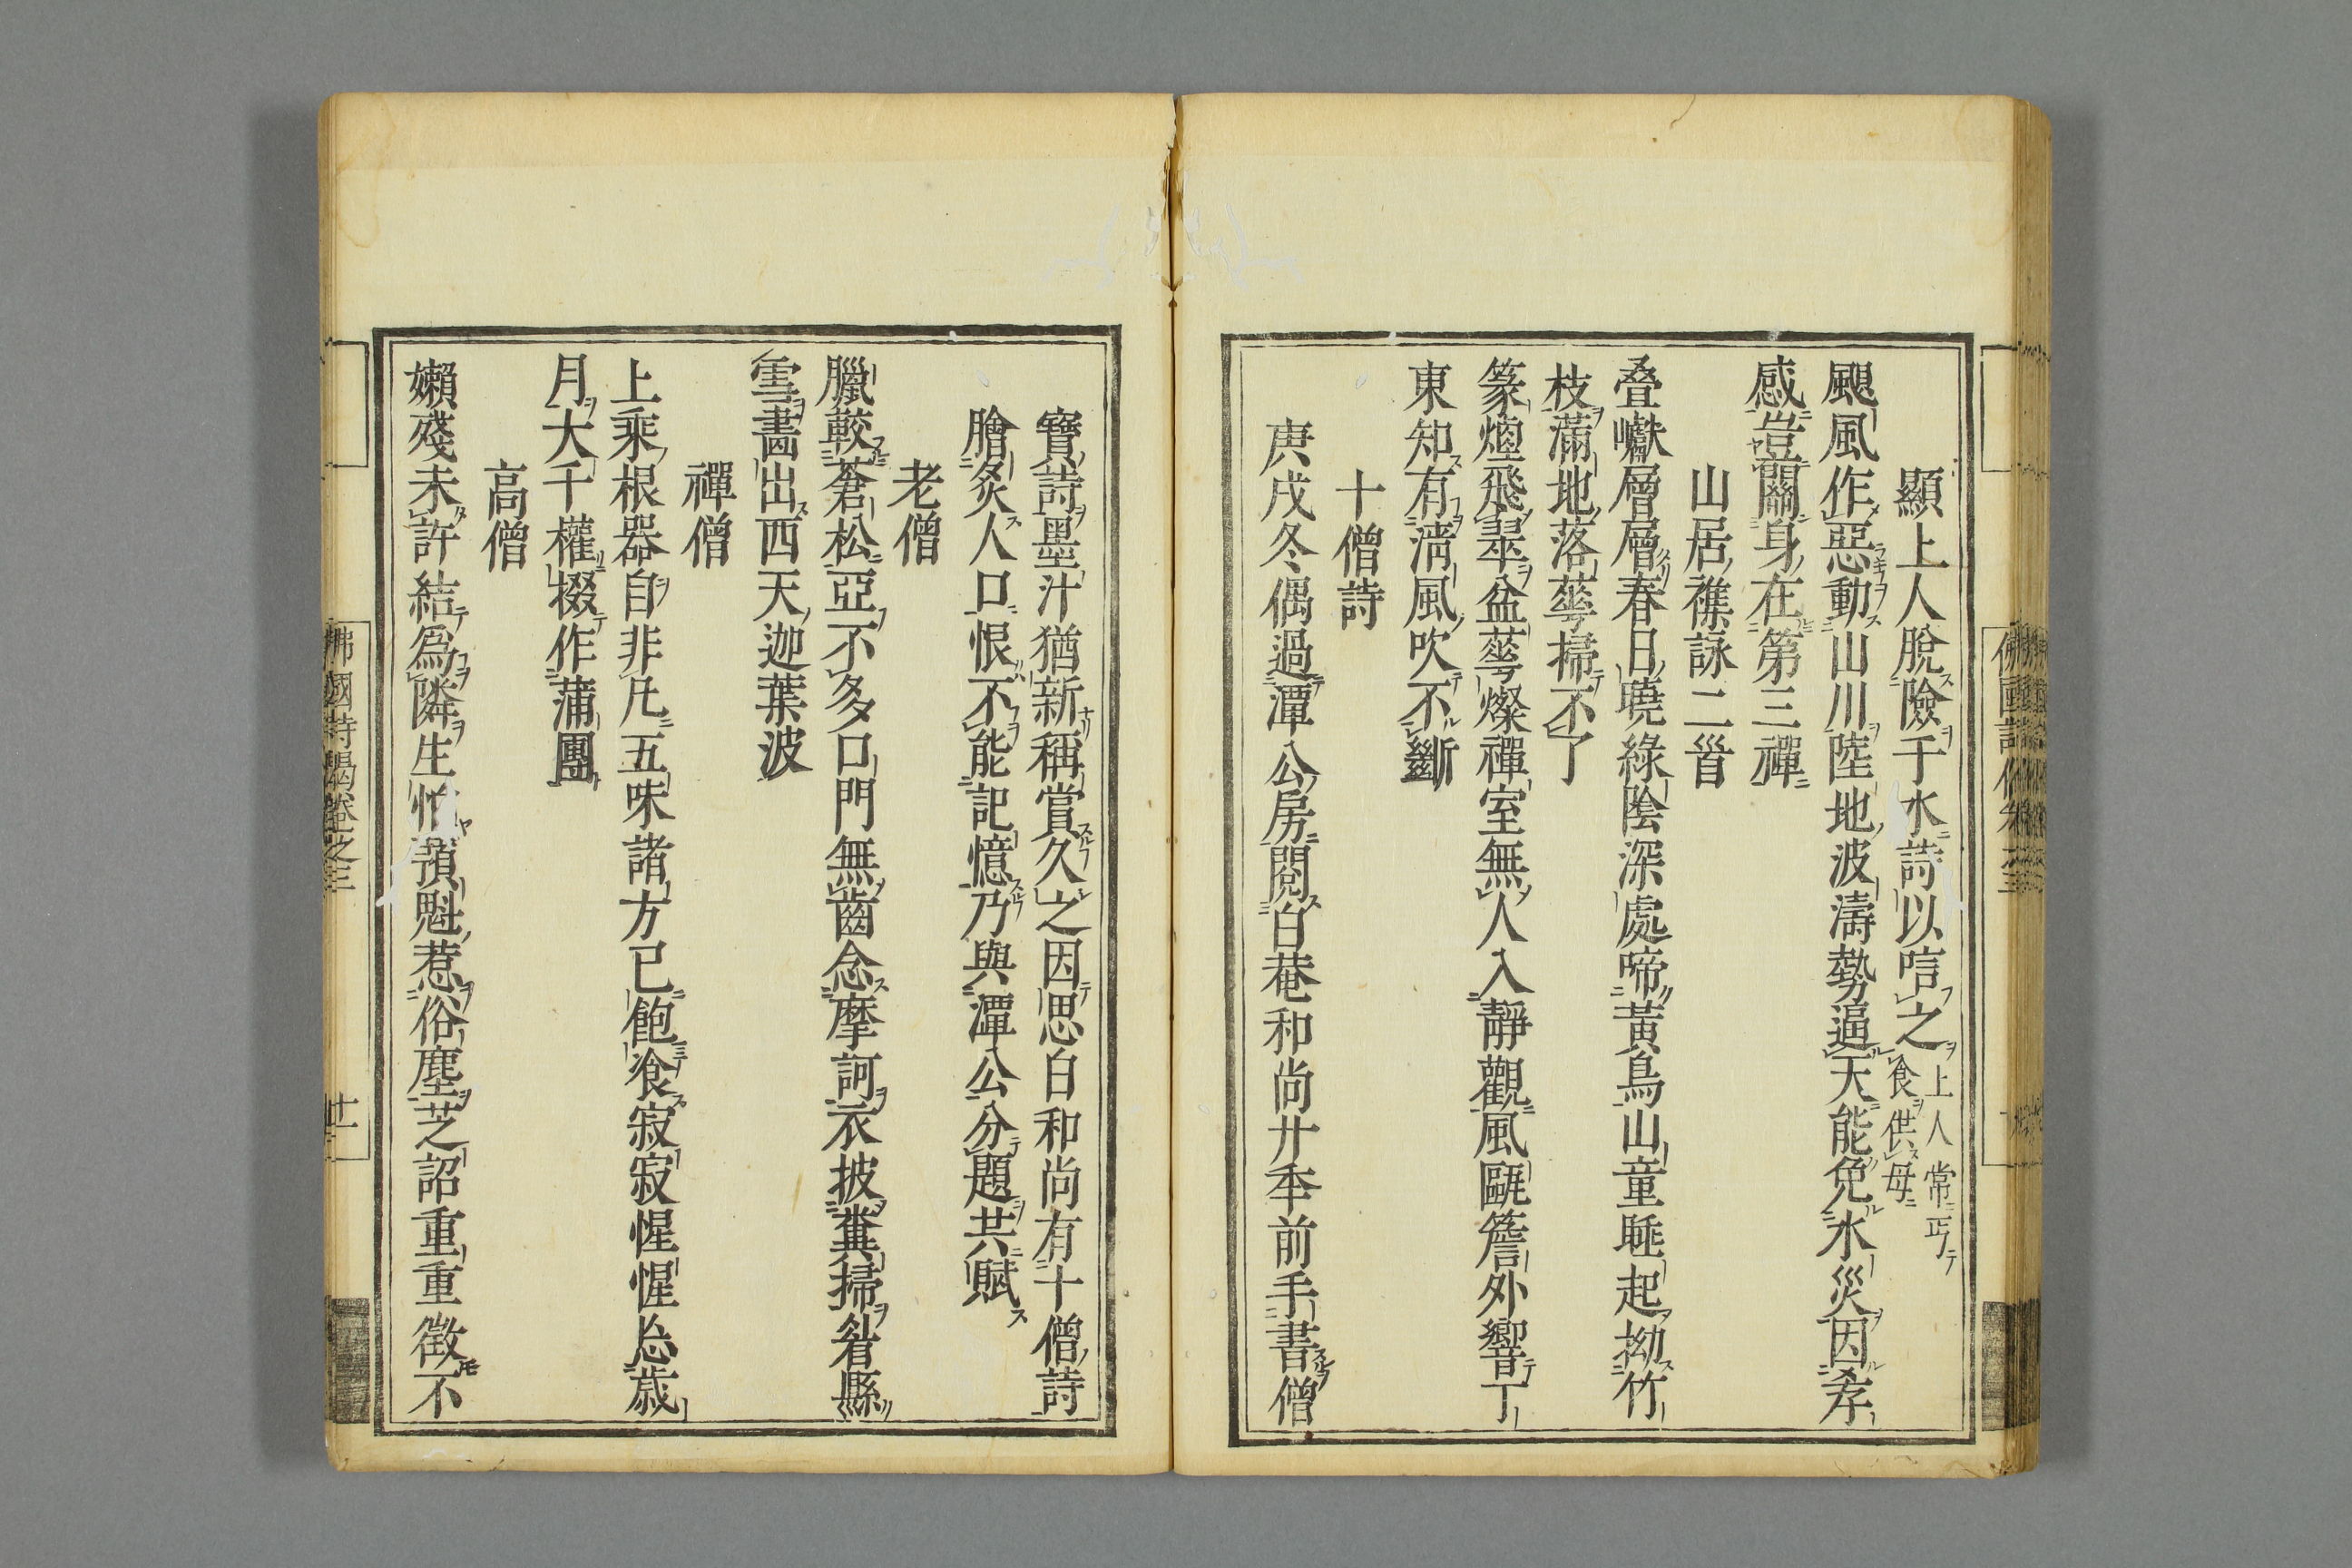 顯上人脫險于水詩以唁之 上人常丐食供母
颶風作惡動山川陸地波濤勢逼天能免水災因孝
感豈關身在第三禪
山居襍詠二首
叠巘層層春日曉綠陰深處啼黃鳥山童睡起拗竹
枝滿地落蕚掃不了
篆煙飛翠盆蕚燦禪室無人入靜觀風甌簷外響丁
東知有淸風吹不斷
十僧詩
庚戌冬偶過潭公房閱白菴和尚廿年前手書僧
寶詩墨汁猶新稱賞久之因思白和尚有十僧詩
膾炙人口恨不能記憶乃與潭公分題共賦
老僧
臘較蒼松亞不多口門無齒念摩訶衣披糞掃眉緜
雪畵出西天迦葉波
禪僧
上乘根器自非凡五味諸方已飽飡寂寂惺惺忘歲
月大千權掇作蒲團
高僧
嬾殘未許結爲隣生怕預魁惹俗塵芝詔重重徵不
佛國詩偈卷之三
十一